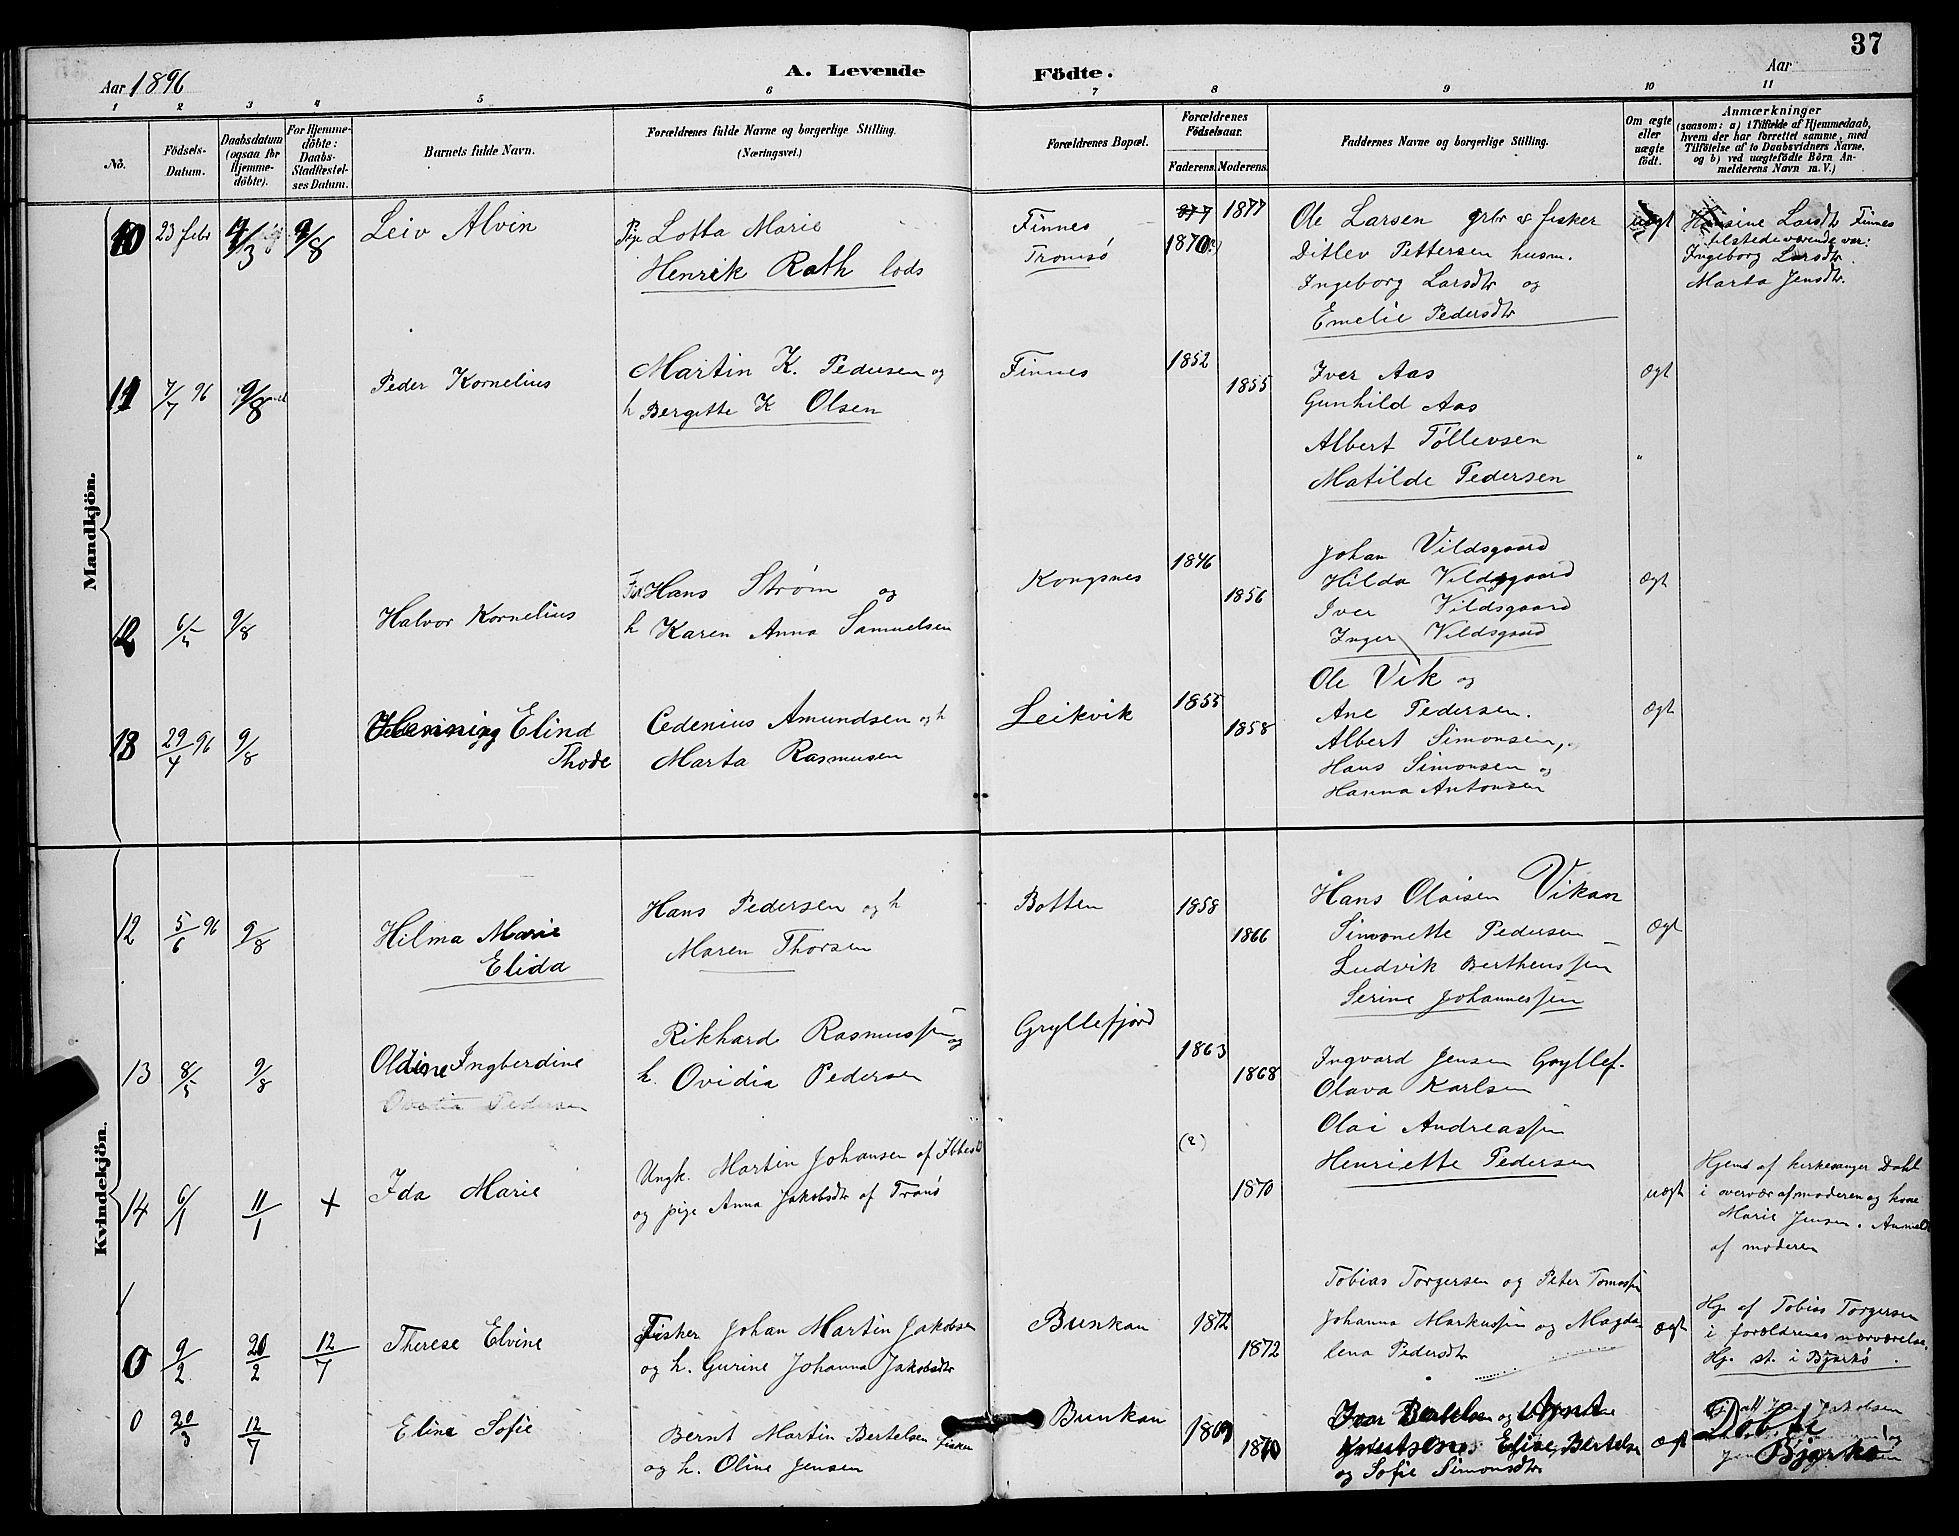 37
Aar 1896
A. Levende Födte.
Aar
1 2 3 4 5 6 7 8 9 10 11
No.
Födsels-Datum.
Daabsdatum (ogsaa for Hjemme-döbte).
For Hjemme-döbte: Daabs-Stadfæstel-ses Datum.
Barnets fulde Navn.
Forældrenes fulde Navne og borgerlige Stilling.
(Næringsvei.)
Forældrenes Bopæl.
Forældrenes Födselsaar.
Faderens. Moderens.
Faddernes Navne og borgerlige Stilling.
Om ægte eller uægte födt.
Anmærkninger
(saasom: a) i Tilfælde af Hjemmedaab,
hvem der har forrettet samme, med
Tilföielse af to Daabsvidners Navne,
og b) ved uægtefödte Börn An-
melderens Navn m. V.)
Mandkjön.
10 23 febr 4/3 9/8 Leiv Alvin
Pige Lotta Marie
Henrik Rath lods
Finnes
Tromsø
1877
1870
Ole Larsen grbr & fisker
Ditlev Pettersen husm.
Ingeborg Larsdtr og
Emelie Pedersdtr
uægt
Hansine Larsdtr Finnes
tilstedeværende var:
Ingeborg Larsdtr.
Marta Jensdtr.
11 7/7 96 9/8 Peder Kornelius
Martin K. Pedersen og
h Bergitte K Olsen
Finnes
1852
1855
Iver Aas
Gunhild Aas
Albert Töllevsen
Matilde Pedersen
Ægt
"
12 6/5 9/8 Halvor Kornelius
Hans Strøm og
h Karen Anna Samuelsen
Kongsnes
1846
1856
Johan Vildsgaard
Hilda Vildsgaard
Iver Vildsgaard
Inger Vildsgaard
Ægt
13 29/4 96 9/8 Henning Elind
Thode
Cedenius Amundsen og h
Marta Rasmusen
Leikvik
1855
1858
Ole Vik og
Ane Pedersen.
Albert Simonsen,
Hans Simonsen og
Hanna Antonsen
Ægt
Kvindekjön.
12 5/6 96 9/8 Hilma Marie
Elida
Hans Pedersen og h
Maren Thorsen
Botten
1858
1866
Hans Olaisen Vikan
Simonette Pedersen
Ludvik Berthenssen
Serine Johannessen
Ægt
13 8/5 9/8 Oldine Ingberdine
Rikhard Rasmussen og
h. Ovidia Pedersen
Gryllefjord
1863
1868
Ingvard Jensen Gryllef.
Olava Karlsen
Olai Andreassen
Henriette Pedersen
14 6/1 11/1 + Ida Marie
Ungk. Martin Johansen af Ibbestd
og pige Anna Jakobsdtr af Tranö
(?)
1870
uægt
Hjemd af kirkesanger Dahl
i overvær af moderen og kone
Marie Jensen. Anmeldt
af moderen
0 9/2 20/2 12/7 Therese Elvine
Fisker Johan Martin Jakobsen
og h. Gurine Johanna Jakobsdtr
Bunkan
1872
1872
Tobias Torgersen og Peter Tomassen
Johanna Markussen og Magda
lena Pedersdtr
Ægt
Hj. af Tobias Torgersen
i forældrenes nærværelse.
Hj. st. i Bjarkö.
0 20/3 12/7 Eline Sofie
Bernt Martin Bertelsen fisker
og h. Oline Jensen
Bunkan
1869
1870
Ivar Bertelsen og Arnt
Knutsen Elise Bertelsen
og Sofie Simonsdtr
Ægt
Döbt i
Bjarkö